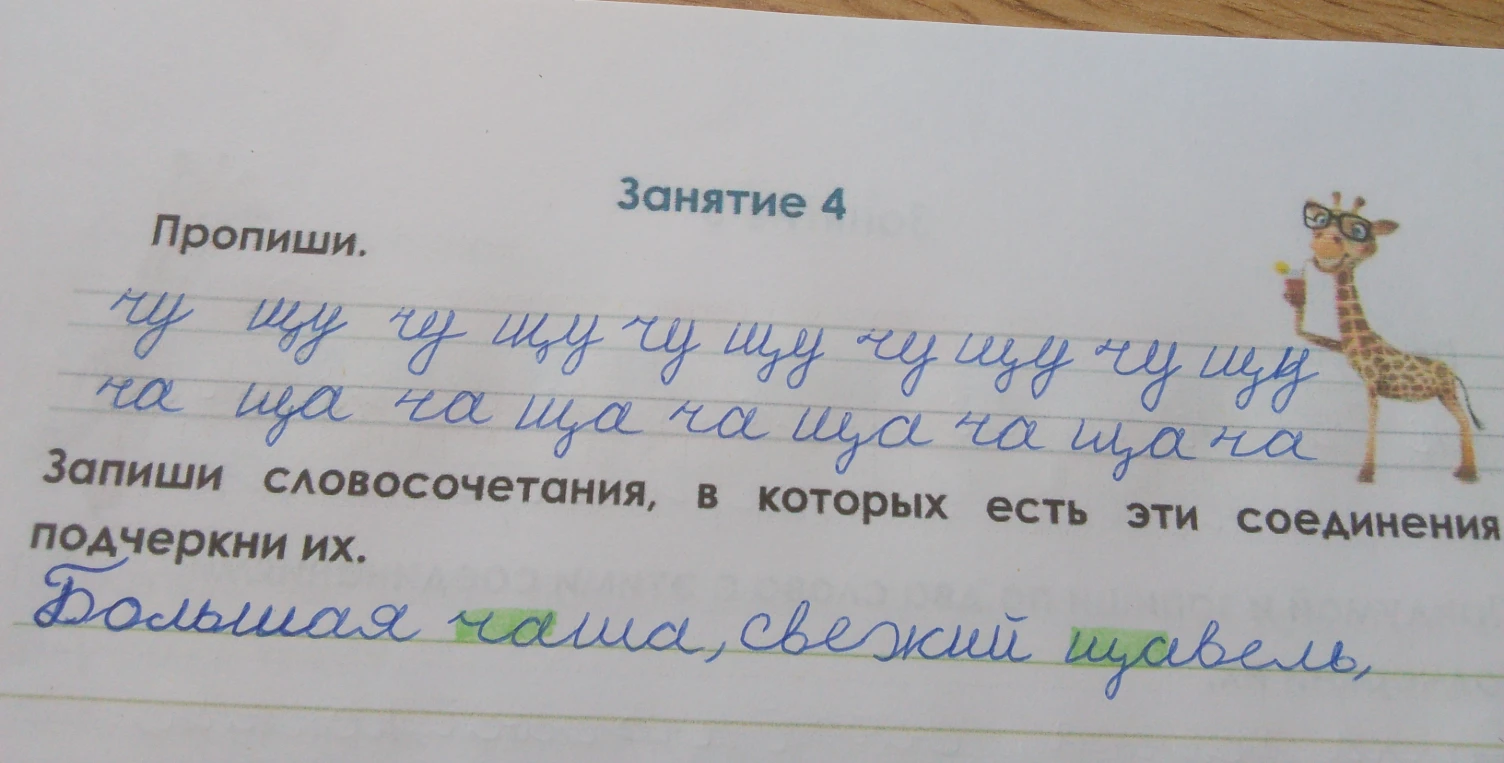 Занятие 4
Пропиши.
чу щу чу щу чу щу чу щу чу щу
ча ща ча ща ча ща ча ща ча
Запиши словосочетания, в которых есть эти соединения
подчеркни их.
Большая чаша, свежий щавель,